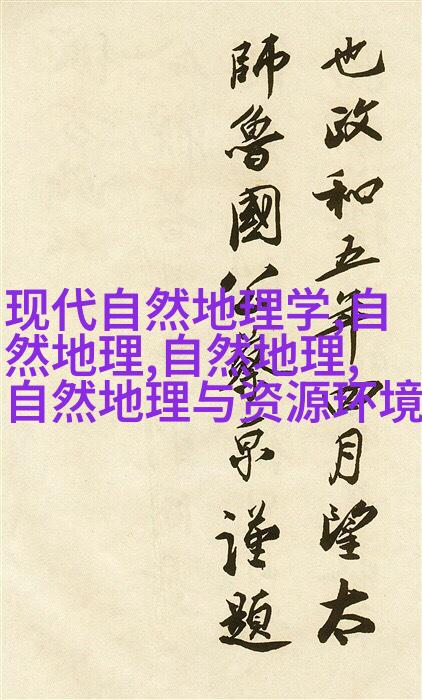 也政和五年四月望太
師魯國公蔡京謹題
现代自然地理学,自
然地理,自然地理,
自然地理与资源环境